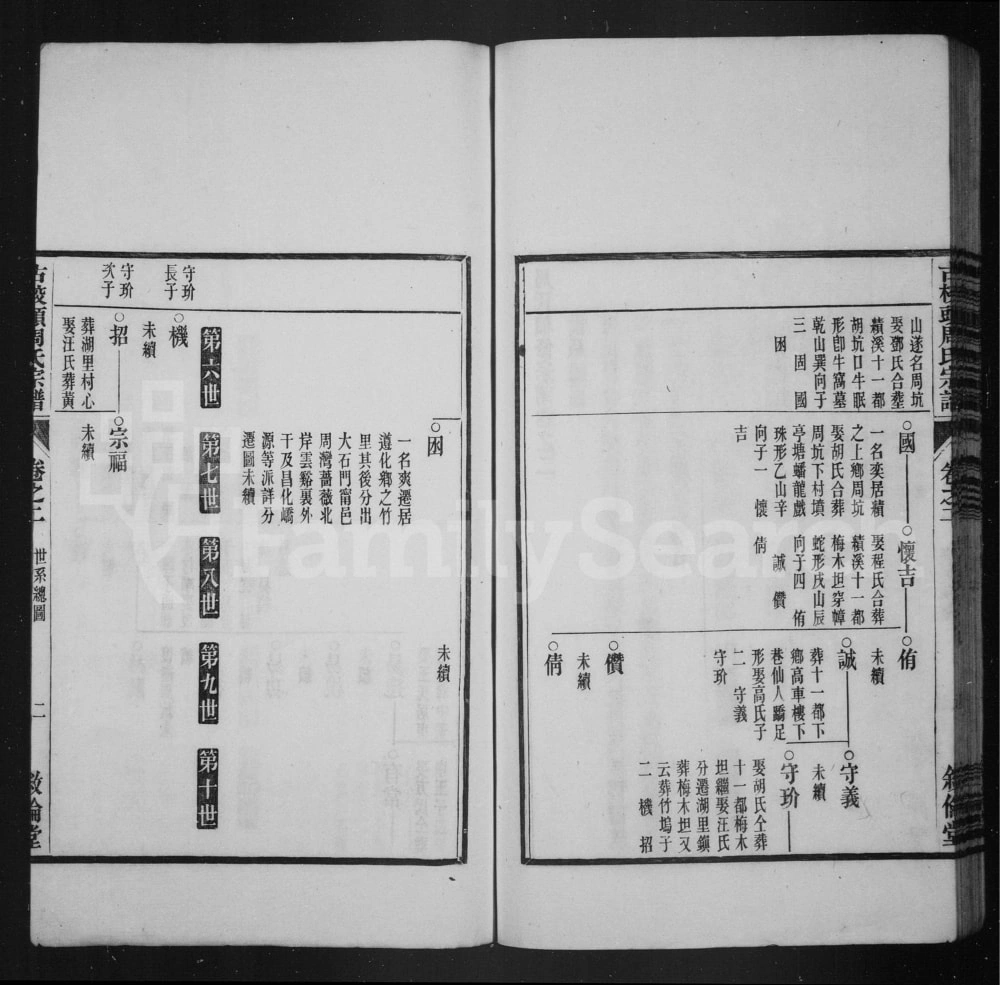 山遂名周坑
娶鄧氏合塟
績溪十一都
胡坑口牛眠
形卽牛窩墓
乾山巽向子
三 固 國
囦
國
一名奕居績
之上鄉周坑
娶胡氏合葬
周坑下村墳
亭塘蟠龍戲
珠形乙山辛
向子一 懷
吉
懷吉
娶程氏合葬
績溪十一都
梅木坦穿幛
蛇形戌山辰
向子四 侑
誠 儹
倩
侑
未續
誠
葬十一都下
鄉高車樓下
巷仙人蹻足
形娶高氏子
二 守義
守玠
守義
未續
守玠
娶胡氏仝葬
十一都梅木
坦繼娶汪氏
分遷湖里鎭
葬梅木坦又
云葬竹塢子
二 機 招
儹
未續
倩
未續
囦
一名爽遷居
道化鄉之竹
里其後分出
大石門甯邑
周灣薔薇北
岸雲谿裏外
干及昌化嶠
源等派詳分
遷圖未續
第六世
第七世
第八世
第九世
第十世
守玠
長子
機
未續
守玠
次子
招
葬湖里村心
娶汪氏葬黃
宗福
未續
周氏宗譜
卷之二
世系總圖
二
敘倫堂
FamilySearch